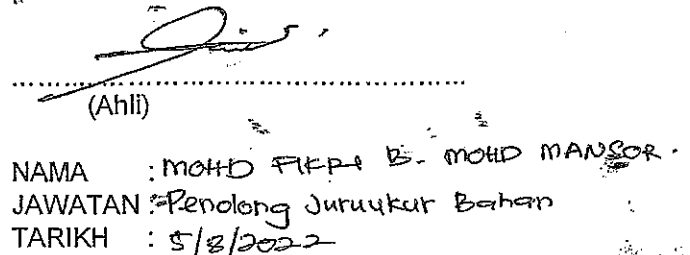 (Ahli)
NAMA : MOHD FIKRI B. MOHD MANSOR.
JAWATAN : Penolong Juruukur Bahan
TARIKH : 5/8/2022